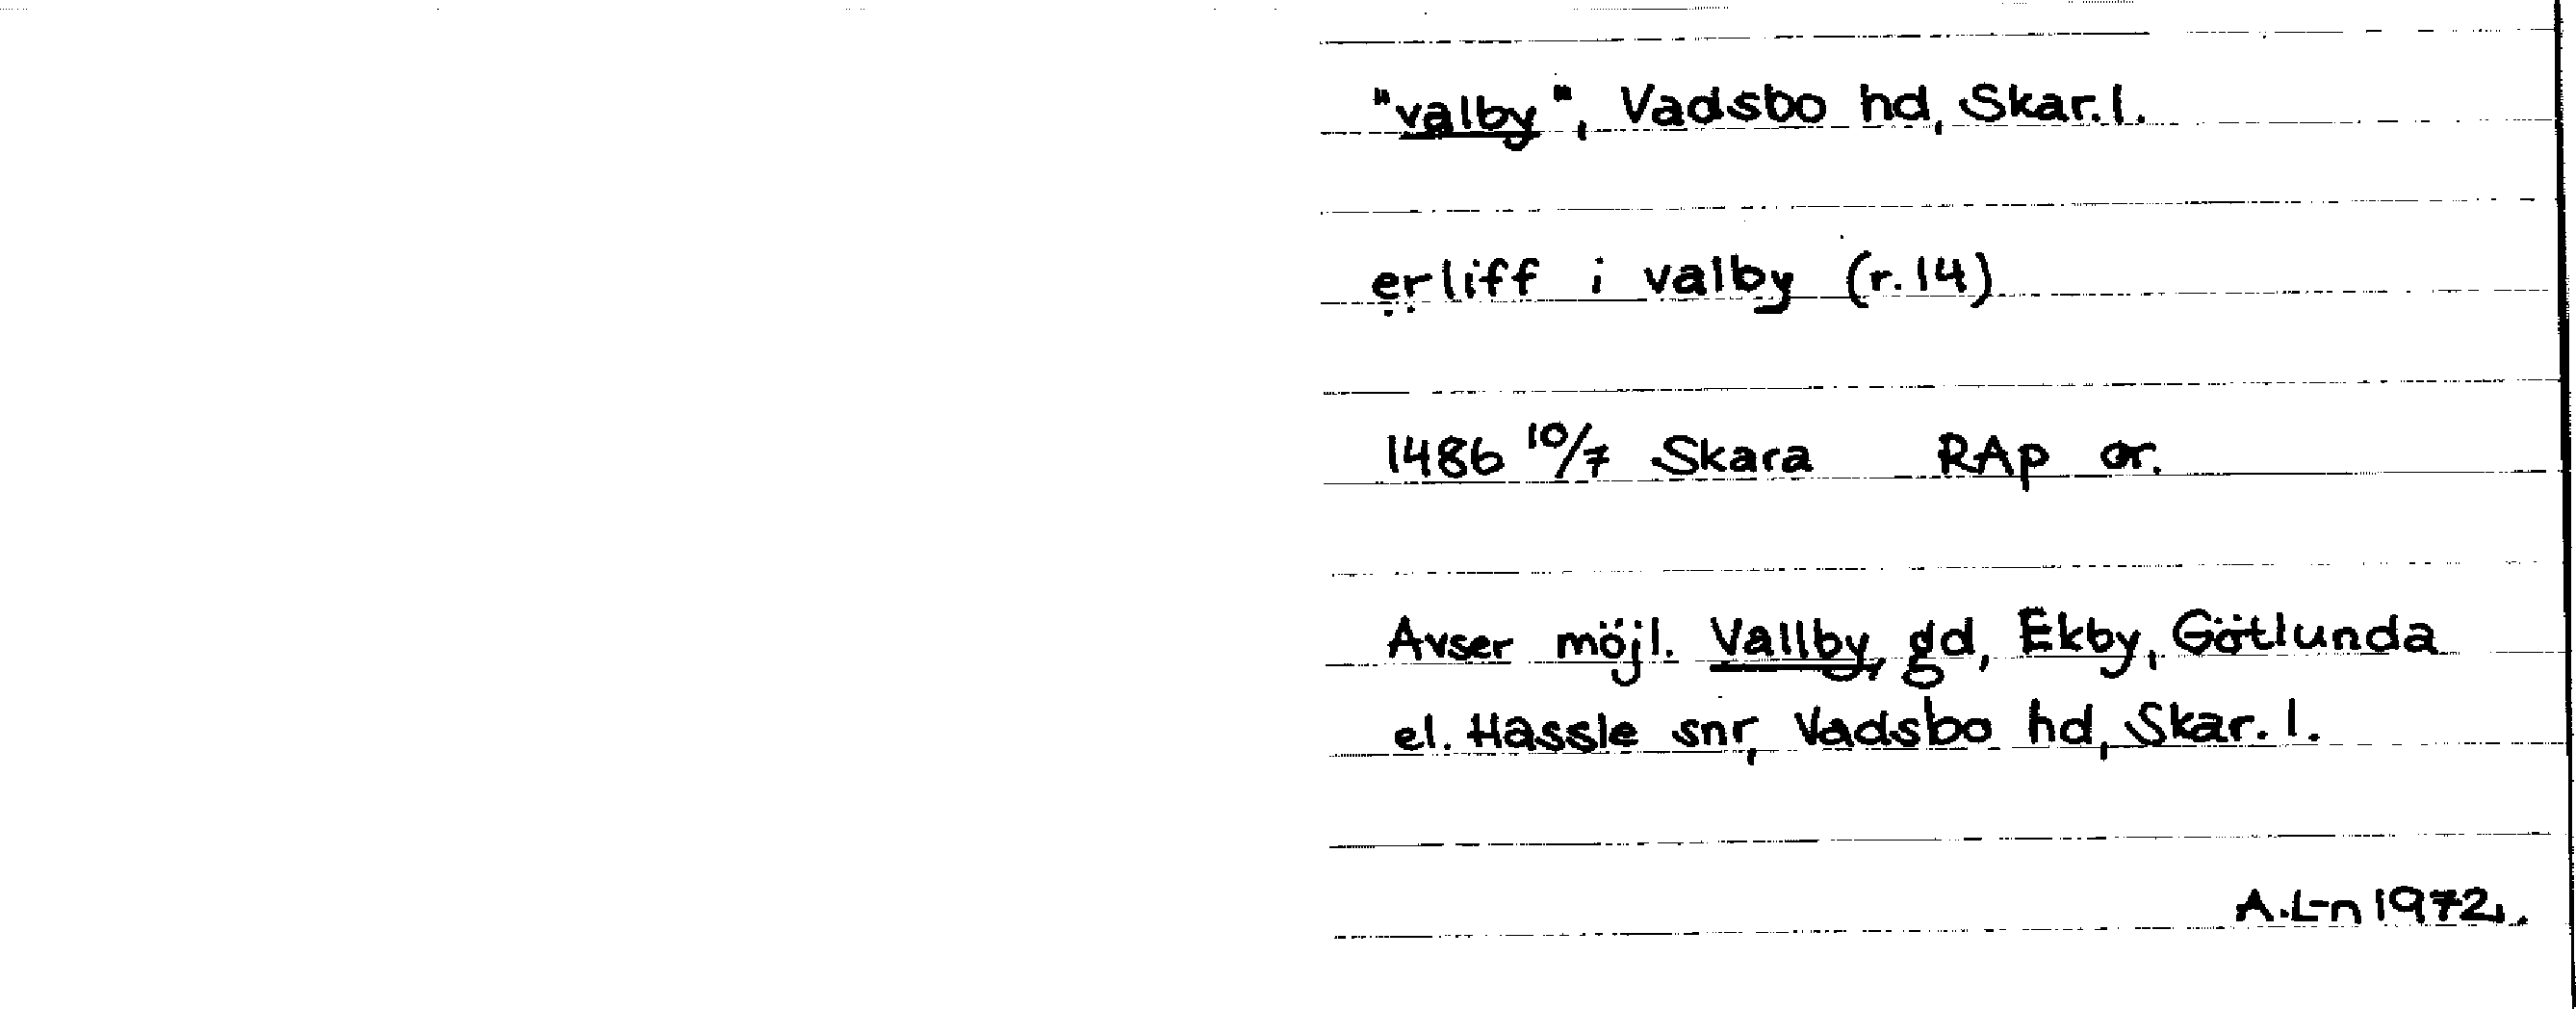 "valby", Vadsbo hd, Skar. l.
ẹṛliff i valby (r. 14)
1486 10/7 Skara RAp or.
Avser möjl. Vallby, gd, Ekby, Götlunda
el. Hassle snr, Vadsbo hd, Skar. l.
A. L-n 1972.